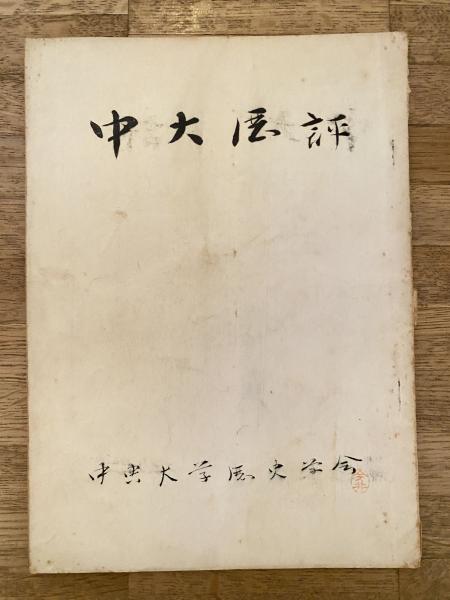 中大厂評
中央大学厂史学会